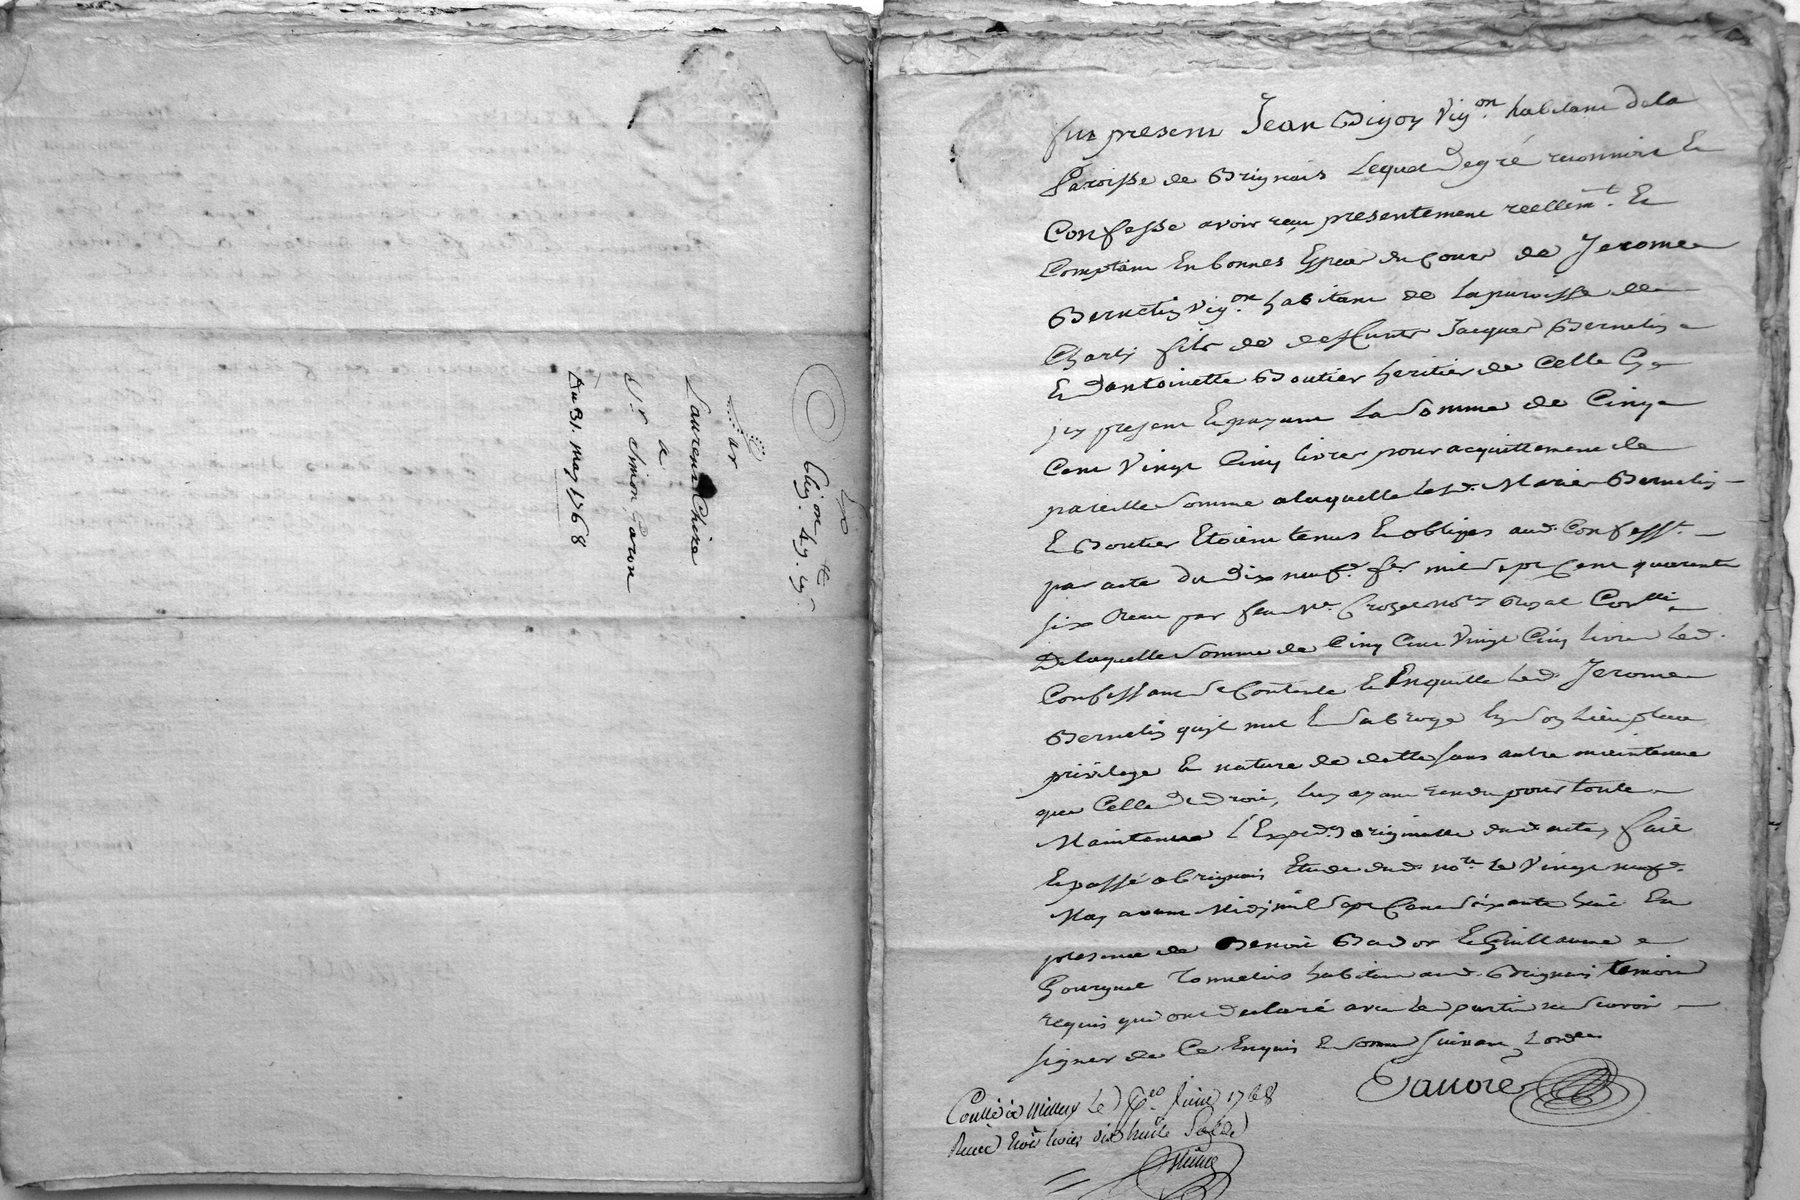 Lige
Obligon 49.tt 19.s
Par
Laurent Chira
a
Sr. Simon Caron
Du 31. may 1768
fut present Jean Bigoy Vigon. habitant de la
Paroisse de Brignais Lequel de gré reconnoit Et
Confesse avoir reçu presentement reellemt. Et
Comptant En bonnes Especes du Cours de Jerome
Bernetis Vigon habitant de La paroisse de
Charly fils de deffunts Jacques Bernetis
Et d'antoinette Boutier heritier de Celle Cy
jcy present Et payant La Somme de Cinq
Cent Vingt Cinq livres pour acquittement de
pareille Somme a laquelle lesd. Mariés Bernetis
Et Boutier Etoient tenus Et obligés aud. Confesst.
par acte du dix neuf fer. mil Sept Cent quarante
six Receu par feu Me. Crozet nore Royal Conllé
De laquelle Somme de Cinq Cent Vingt Cinq livres led.
Confessant se Contente Et En quitte led. Jerome
Bernetis qu'jl met Et Subroge En Son Lieu place
privilege Et nature de dette sans autre maintenue
que Celle de droit, luy ayant rendu pour toute
Maintenue l'Expedon originalle dud. acte, fait
Et passé a Brignais Etude dud. nore. le Vingt neuf
May avant Midy mil Sept Cent Soixante huit En
presence de Benoit Bador Et Guillaume
Gourgout Tonneliers habitans aud. Brignais temoins
requis qui ont declaré avec les parties ne Scavoir
signer de Ce Enquis Et Sommés suivant L'ordce
Conllé a Millery Le Juin 1768
Receu trois livres dix huit Sols